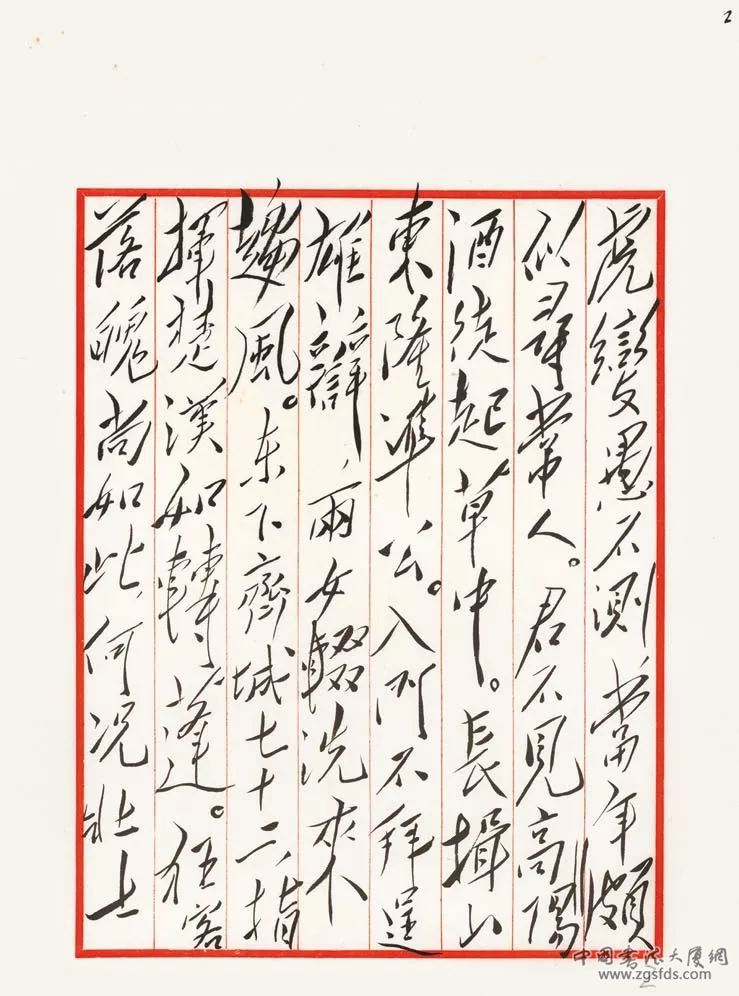 2
虎變愚不測,當年頗
似尋常人。君不見高陽
酒徒起草中。長揖山
東隆準公。入門不拜逞
雄辯,兩女輟洗來
趨風。东下齊城七十二,指
揮楚漢如轉蓬。狂客
落魄尚如此,何况壯士
中國書法大廈網
www.zgsfds.com